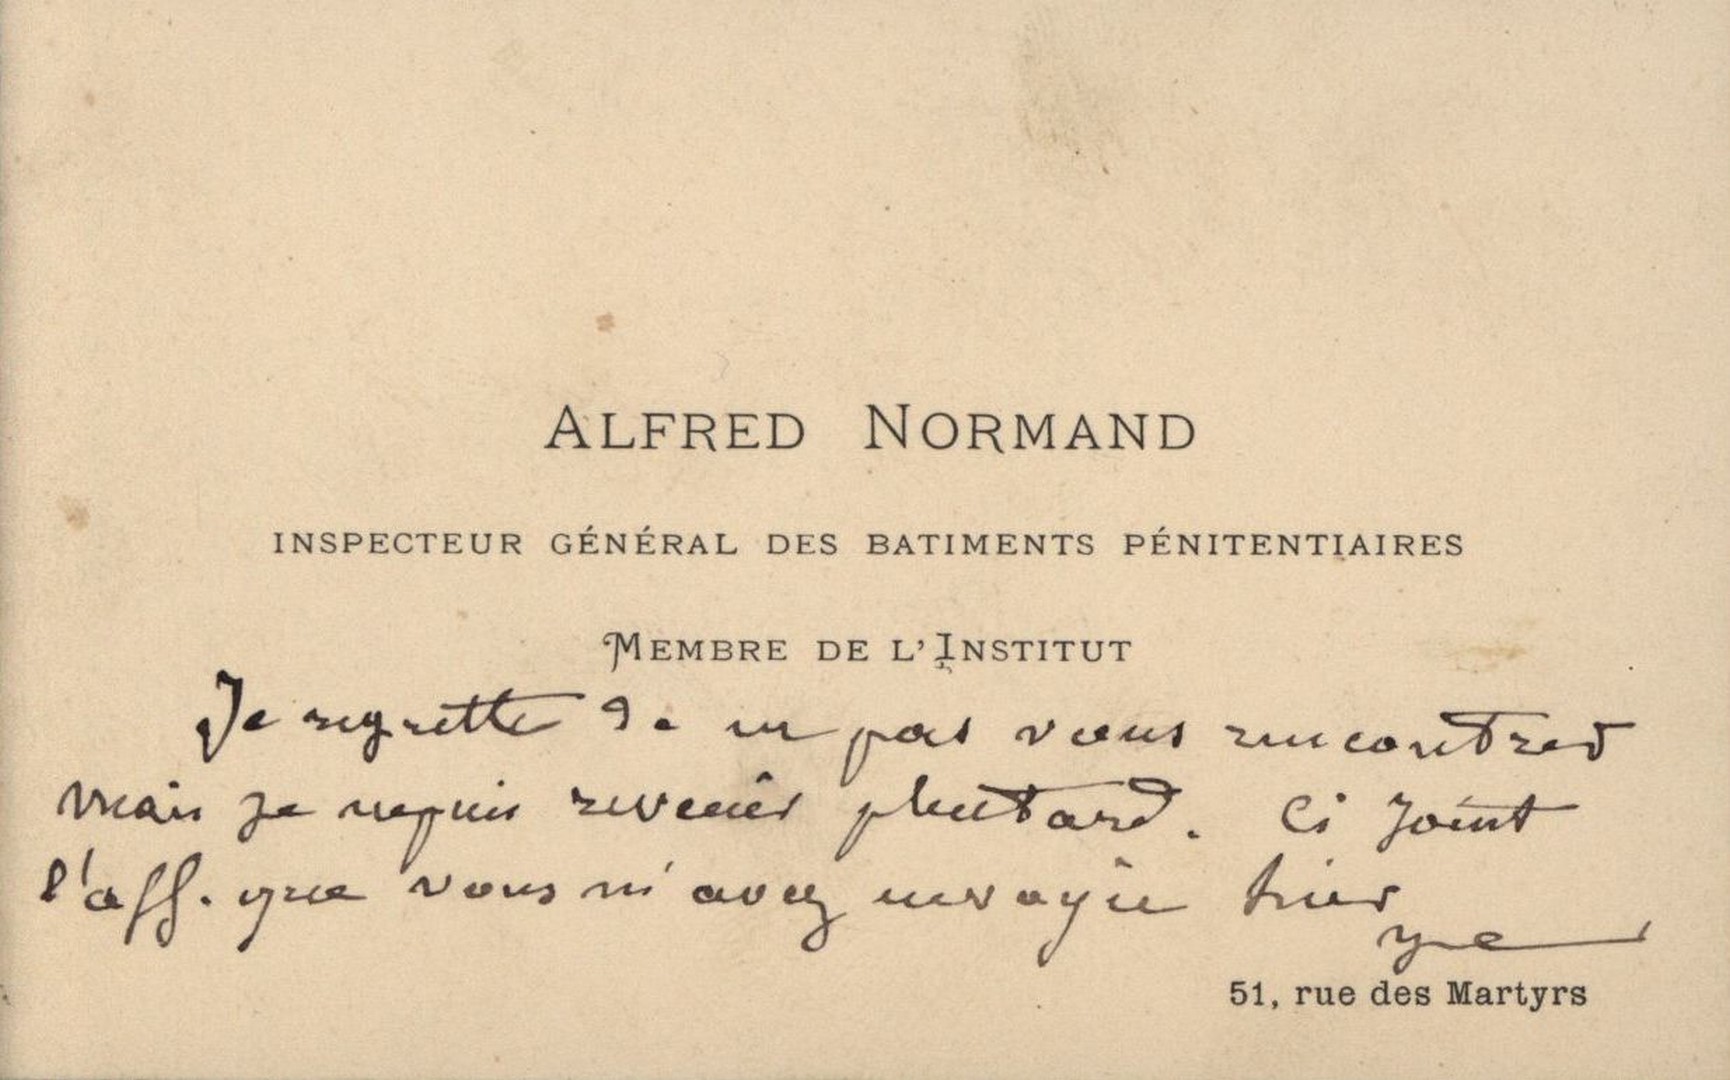 ALFRED NORMAND
INSPECTEUR GÉNÉRAL DES BATIMENTS PÉNITENTIAIRES
MEMBRE DE L'INSTITUT
Je regrette de ne pas vous rencontrer
mais je ne puis revenir plus tard. Ci joint
l'aff. que vous m'avez envoyée hier
51, rue des Martyrs